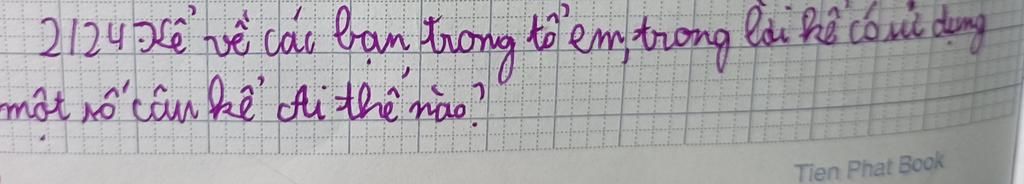 2/24 Kể về các bạn trong tổ em, trong lời kể có sử dụng
một số câu kể Ai thế nào?
Tien Phat Book